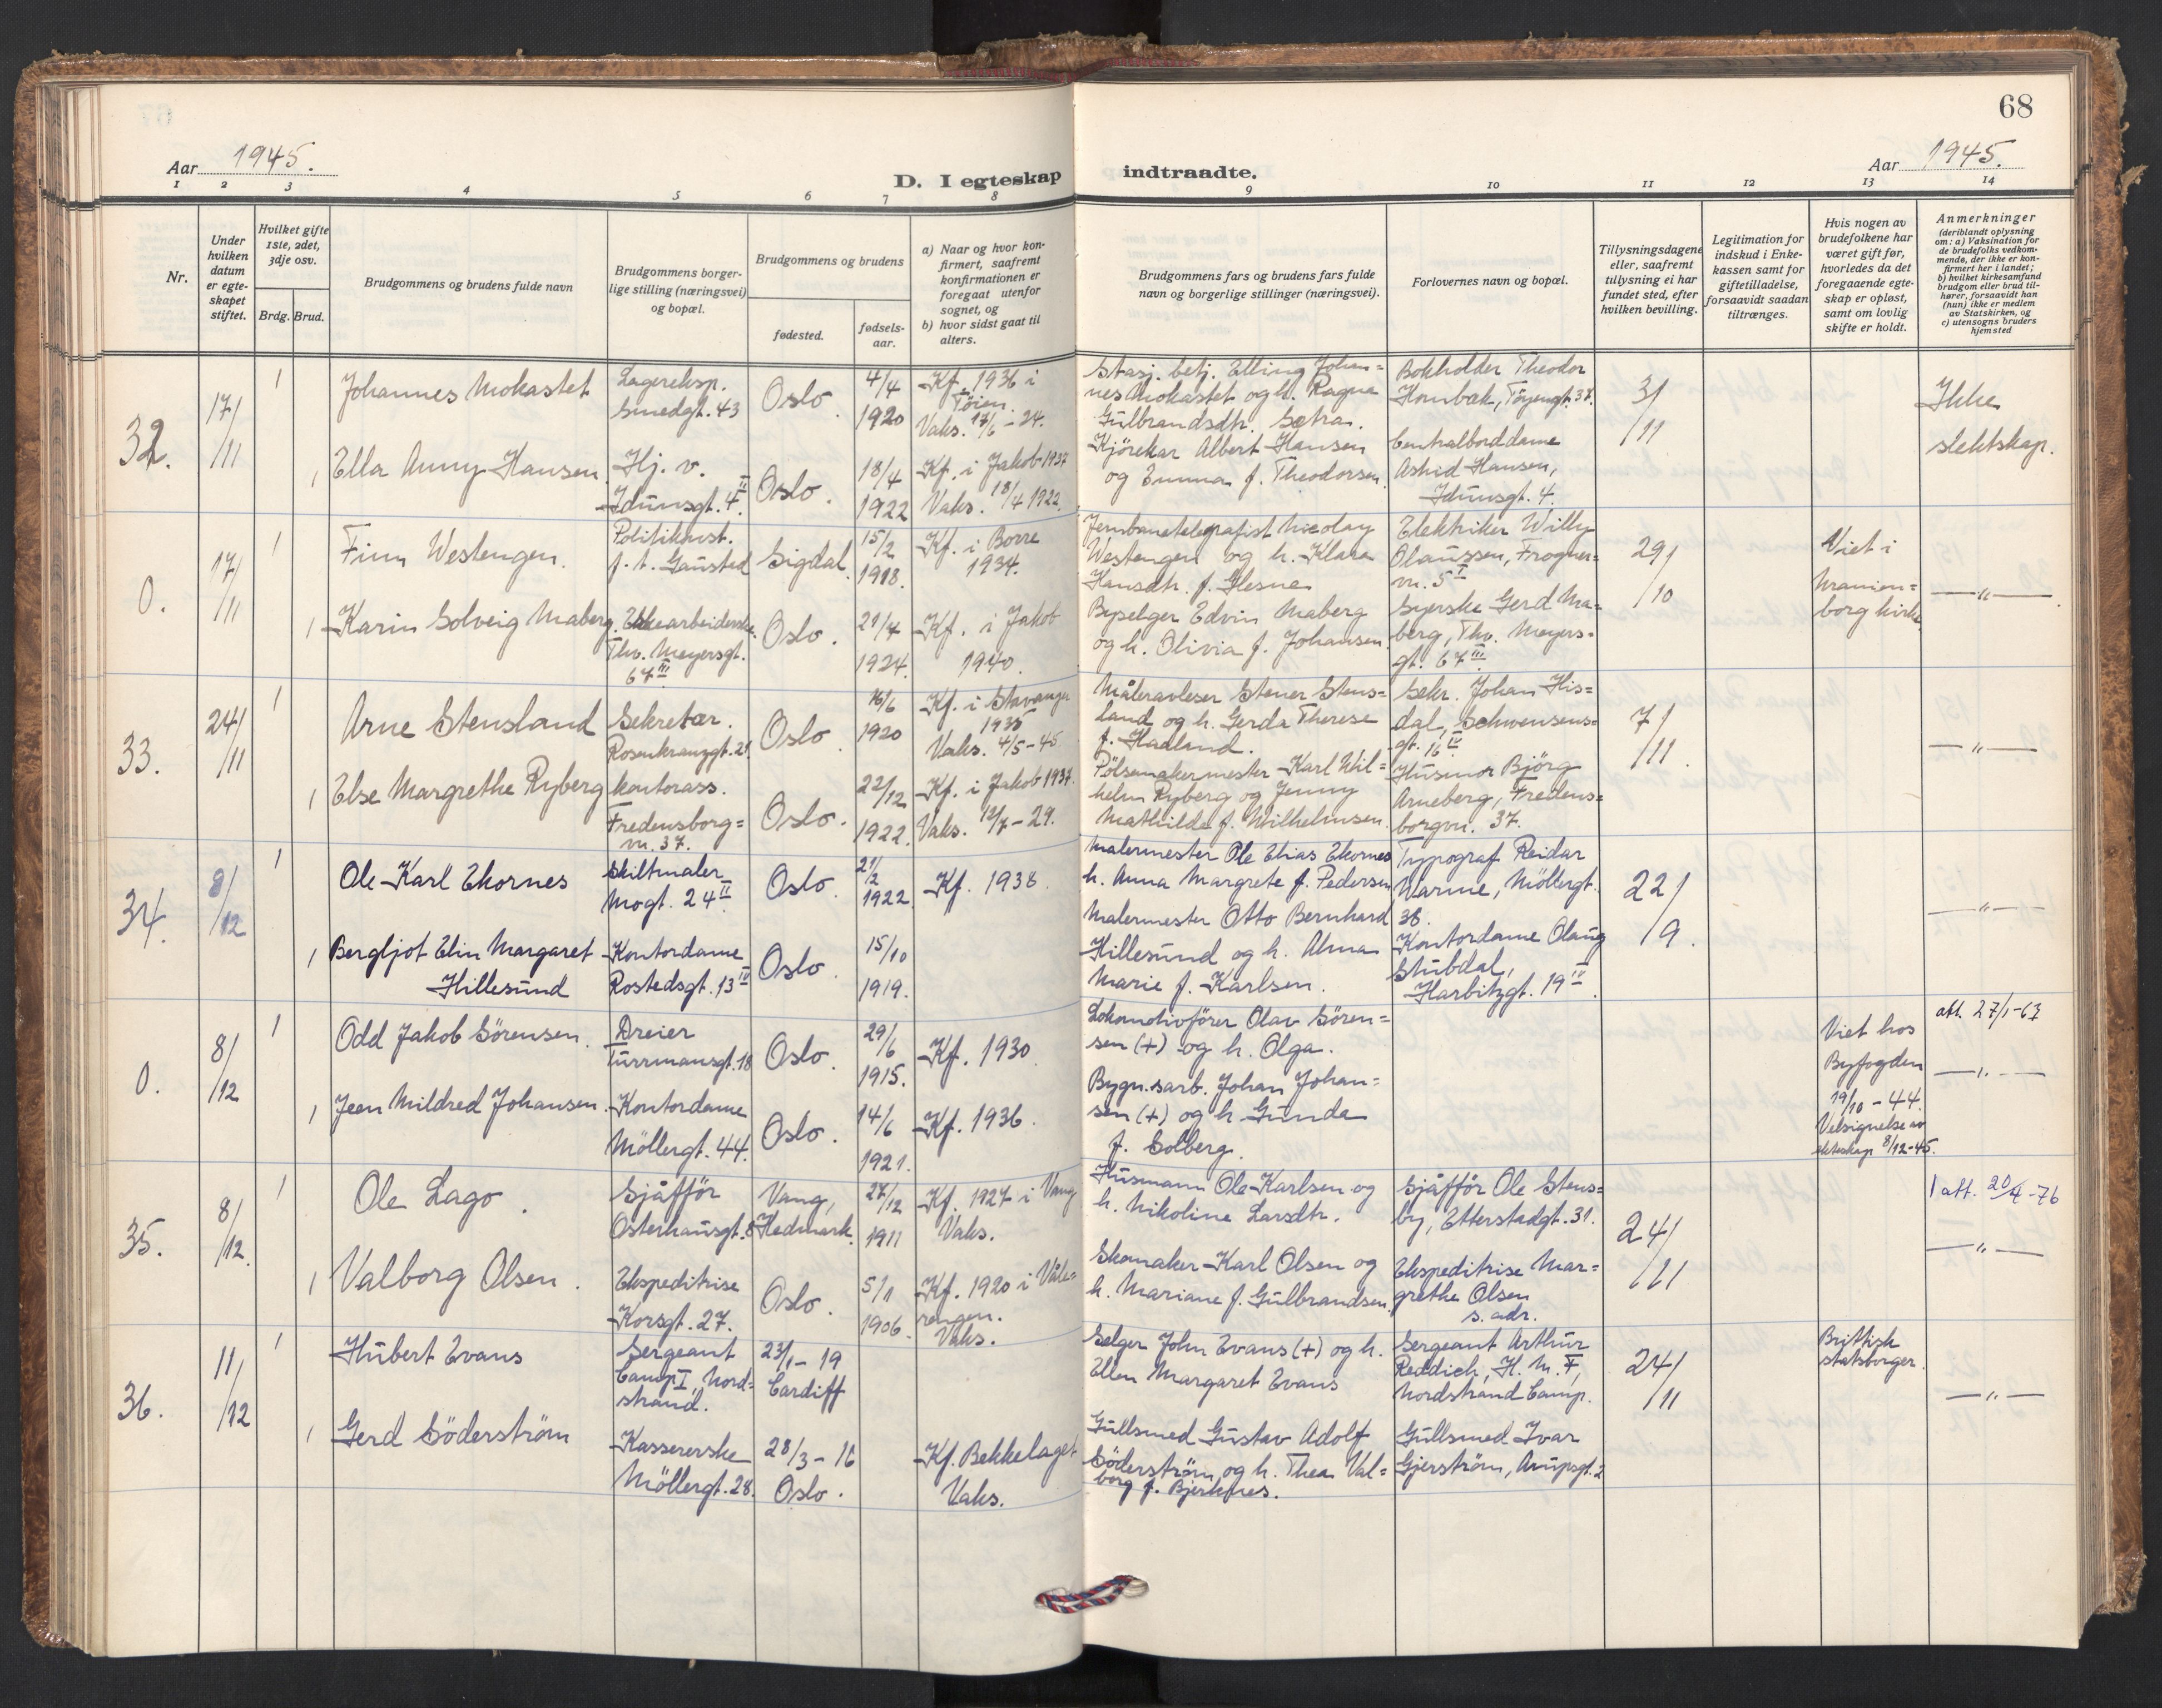 68
Aar 1945.
D. I egteskap indtraadte.
Aar 1945.
1 2 3 4 5 6 7 8 9 10 11 12 13 14
Nr.
Under hvilken datum er egteskapet stiftet.
Hvilket gifte 1ste, 2det, 3dje osv.
Brdg. Brud.
Brudgommens og brudens fulde navn
Brudgommens borgerlige stilling (næringsvei) og bopæl.
Brudgommens og brudens
fødested.
fødselsaar.
a) Naar og hvor konfirmert, saafremt konfirmationen er foregaat utenfor sognet, og
b) hvor sidst gaat til alters.
Brudgommens fars og brudens fars fulde navn og borgerlige stillinger (næringsvei).
Forlovernes navn og bopæl.
Tillysningsdagene eller, saafremt tillysning ei har fundet sted, efter hvilken bevilling.
Legitimation for indskud i Enkekassen samt for giftetilladelse, forsaavidt saadan tiltrænges.
Hvis nogen av brudefolkene har været gift før, hvorledes da det foregaaende egteskap er opløst, samt om lovlig skifte er holdt.
Anmerkninger
(deriblandt oplysning om: a) Vaksination for de brudefolks vedkommende, der ikke er konfirmert her i landet; b) hvilket kirkesamfund brudgom eller brud tilhører, forsaavidt han (hun) ikke er medlem av Statskirken, og c) utensogns bruders hjemsted
32.
17/11
1
Johannes Mokastet
Lagereksp.
Smedgt. 43
Oslo.
4/4
1920
Kf. 1936 i
Tøien.
Vaks. 17/6 - 24.
Stasj. betj. Elling Johan=
nes Mokastet og h. Ragna
Gulbrandsdtr. Sætra.
Bokholder Theodor
Hornbæk, Töyengt. 37.
3/11
Ikke
slektskap.
1
Ella Anny Hansen
Hj. v.
Idunsgt. 4 II
Oslo.
18/4
1922
Kf. i Jakob 1937
Vaks. 18/4 1922.
Kjörekar Albert Hansen
og Emma f. Theodorsen.
Centralborddame
Astrid Hansen,
Idunsgt. 4.
0.
17/11
1
Finn Westengen.
Politikonst.
f. t. Gaustad
Sigdal.
15/2
1918.
Kf. i Borre
1934.
Jernbanetelegrafist Nicolay
Westengen og h. Klara
Hansdtr. f. Glesne
Elektriker Willy
Olaussen, Frogner=
vn. 5 I
29/10
Viet i
Uranien=
borg kirke.
— " —
1
Karin Solveig Maberg.
Eskearbeiderske.
Thv. Meyersgt.
67 III
Oslo.
21/4
1924.
Kf. i Jakob
1940.
Byselger Edvin Maberg
og h. Olivia f. Johansen.
Syerske Gerd Ma=
berg, Thv. Meyers=
gt. 67 III
33.
24/11
1
Arne Stensland
Sekretær.
Rosenkrantzgt. 21.
Oslo.
16/6
1920
Kf. i Stavanger
1935
Vaks. 4/5 - 45
Måleravleser Stener Stens=
land og h. Gerda Therese
f. Hadland.
Sekr. Johan His=
dal, Schwensens=
gt. 16 IV
7/11.
— " —
1
Else Margrethe Ryberg
Kontorass.
Fredensborg=
vn. 37.
Oslo.
22/12
1922.
Kf. i Jakob 1937.
Vaks. 12/7 - 29.
Pölsemakermester Karl Wil=
helm Ryberg og Jenny
Mathilde f. Wilhelmsen.
Husmor Björg
Arneberg, Fredens=
borgvn. 37.
34.
8/12
1
Ole Karl Ekornes
Skiltmaler
Mogt. 24 II
Oslo.
21/2
1922.
Kf. 1938.
Malermester Ole Elias Ekornes
h. Anna Margrete f. Pedersen
Typograf Reidar
Warme, Möllergt.
38.
22/9.
— " —
1
Bergljot Elin Margaret
Hillesund
Kontordame
Rostedsgt. 13 IV
Oslo.
15/10
1919.
Malermester Otto Bernhard
Hillesund og h. Alma
Marie f. Karlsen.
Kontordame Olaug
Stubdal,
Harbitzgt. 19 IV.
0.
8/12
1
Odd Jakob Sörensen.
Dreier
Turrmansgt. 18
Oslo.
29/6
1915.
Kf. 1930.
Lokomotivförer Olav Sören=
sen (+) og h. Olga.
Viet hos
Byfogden
19/10 - 44.
Velsignelse av
ekteskap 8/12-45.
att. 27/1-63
— " —
1
Jeen Mildred Johansen.
Kontordame
Möllergt. 44.
Oslo.
14/6
1921.
Kf. 1936.
Bygn.sarb. Johan Johan=
sen (+) og h. Gunda
f. Solberg.
35.
8/12.
1
Ole Lago.
Sjåfför
Osterhausgt. 8
Vang,
Hedmark.
27/12
1911
Kf. 1927 i Vang
Vaks.
Husmann Ole Karlsen og
h. Nikoline Larsdtr.
Sjåfför Ole Stens=
by, Etterstadgt. 31.
24/11
1 att. 20/4-76
— " —
1
Valborg Olsen.
Ekspeditrise
Korsgt. 27.
Oslo.
5/1
1906.
Kf. 1920 i Våle=
rengen.
Vaks.
Skomaker Karl Olsen og
h. Mariane f. Gulbrandsen.
Ekspeditrise Mar=
grethe Olsen
s. adr.
36.
11/12
1
Hubert Evans
Sergeant
Camp I, Nord=
strand.
23/1 - 19
Cardiff
Selger John Evans (+) og h.
Ellen Margaret Evans
Sergeant Arthur
Reddich, H. M. F,
Nordstrand Camp.
24/11
Brittisk
statsborger.
— " —
1
Gerd Söderström
Kassererske
Möllergt. 28.
28/3 - 16
Oslo.
Kf. Bekkelaget
Vaks.
Gullsmed Gustav Adolf
Söderström og h. Thea Val=
borg f. Bjerknes.
Gullsmed Ivar
Gjerström, Arupsgt. 2